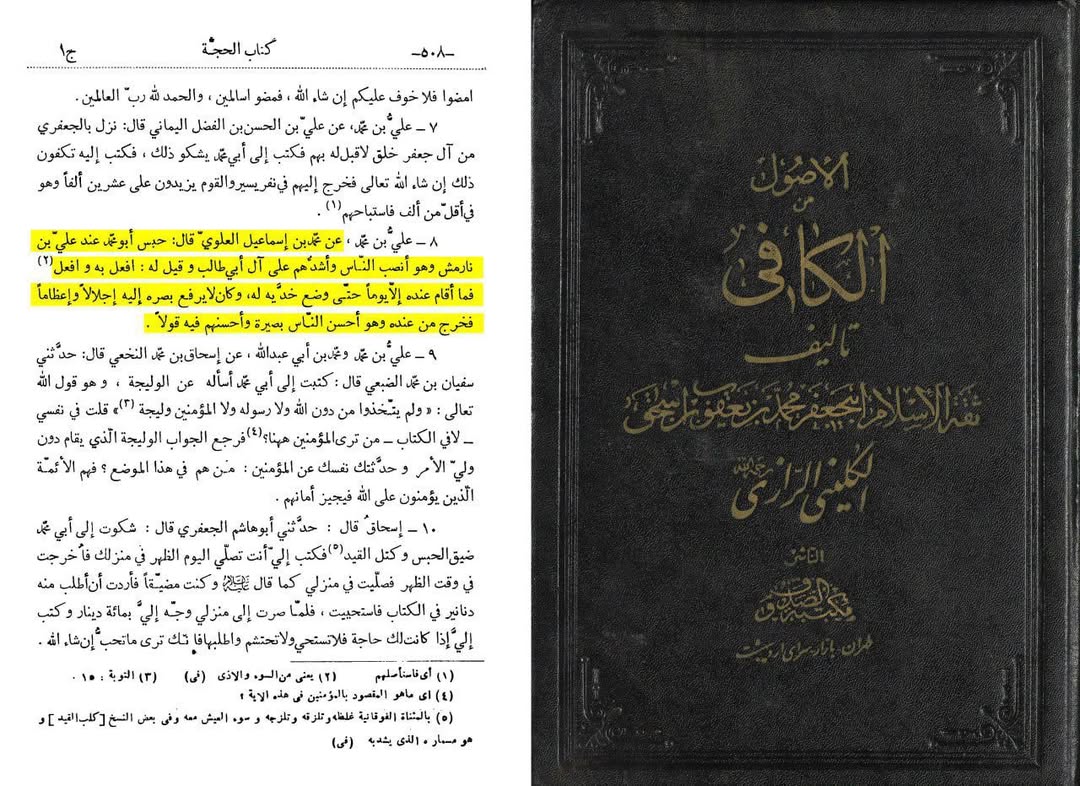 ج١ كتاب الحجّة -٥٠٨-
امضوا فلا خوف عليكم إن شاء الله ، فمضو اسالمين ، والحمد لله ربّ العالمين .
٧ ــ عليُّ بن محمّد، عن عليّ بن الحسن بن الفضل اليماني قال: نزل بالجعفري
من آل جعفر خلق لاقبل له بهم فكتب إلى أبي محمّد يشكو ذلك ، فكتب إليه تكفون
ذلك إن شاء الله تعالى فخرج إليهم في نفر يسير والقوم يزيدون على عشرين ألفاً وهو
في أقلّ من ألف فاستباحهم(١) .
٨ ــ عليُّ بن محمّد ، عن محمّد بن إسماعيل العلويّ قال: حبس أبو محمّد عند عليّ بن
نارمش وهو أنصب النّاس وأشدّهم على آل أبي طالب و قيل له : افعل به و افعل(٢)
فما أقام عنده إلّا يوماً حتّى وضع خدَّيه له، وكان لا يرفع بصره إليه إجلالاً وإعظاماً
فخرج من عنده وهو أحسن النّاس بصيرة وأحسنهم فيه قولاً .
٩ ــ عليُّ بن محمّد ومحمّد بن أبي عبدالله ، عن إسحاق بن محمّد النخعي قال: حدَّثني
سفيان بن محمّد الضبعي قال : كتبت إلى أبي محمّد أسأله عن الوليجة ، و هو قول الله
تعالى : « ولم يتّخذوا من دون الله ولا رسوله ولا المؤمنين وليجة (٣)» قلت في نفسي
ــ لا في الكتاب ــ من ترى المؤمنين ههنا؟(٤) فرجع الجواب الوليجة الّذي يقام دون
وليّ الأمر و حدَّثتك نفسك عن المؤمنين : من هم في هذا الموضع ؟ فهم الأئمّة
الّذين يؤمنون على الله فيجيز أمانهم .
١٠ ــ إسحاق قال : حدَّثني أبوهاشم الجعفري قال : شكوت إلى أبي محمّد
ضيق الحبس و كتل القيد(٥) فكتب إليّ أنت تصلّي اليوم الظهر في منزلك فاُخرجت
في وقت الظهر فصلّيت في منزلي كما قال عليه السلام و كنت مضيّقاً فأردت أن أطلب منه
دنانير في الكتاب فاستحييت ، فلمّا صرت إلى منزلي وجّه إليَّ بمائة دينار و كتب
إليَّ إذا كانت لك حاجة فلا تستحي ولا تحتشم واطلبها فإنّك ترى ما تحبُّ إن شاء الله .
(١) أى فاستأصلهم (٢) يعنى من السوء والاذى (فى) (٣) التوبة : ١٥ .
(٤) اى ماهو المقصود بالمؤمنين فى هذه الاية ؟
(٥) بالمثناة الفوقانية غلظه وتلزقه وتلزجه و سوء العيش معه وفى بعض النسخ [كلب القيد] و
هو مسماره الذى يشد به (فى)
الاصول
من
الكافى
تاليف
ثقة الاسلام ابى جعفر محمد بن يعقوب بن اسحق
الكلينى الرازى رحمه الله
الناشر
مكتبة الصدوق
طهران - بازار سراى اردیبهشت